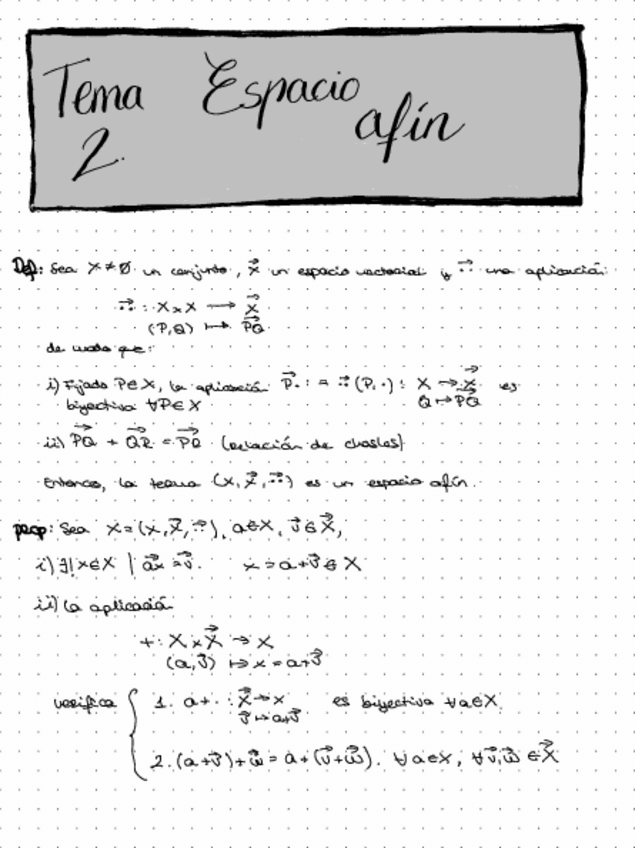 Tema Espacio
2. afín
Def: Sea X≠∅ un conjunto, X⃗ un espacio vectorial y ⃗·· una aplicación:
⃗·· : X×X ⟶ X⃗
(P,Q) ⟼ PQ⃗
de modo que:
i) Fijado P∈X, la aplicación P⃗· := ⃗··(P,·) : X → X⃗ es
biyectiva ∀P∈X Q ↦ PQ⃗
ii) PQ⃗ + QR⃗ = PR⃗ (relación de chasles)
Entonces, la terna (X, X⃗, ⃗··) es un espacio afín.
prop: Sea X=(X, X⃗, ⃗··), a∈X, v⃗∈X⃗,
i) ∃! x∈X | ax⃗ = v⃗. x = a+v⃗ ∈ X
ii) La aplicación
+ : X×X⃗ → X
(a,v⃗) ↦ x = a+v⃗
verifica 1. a+· : X⃗ → X es biyectiva ∀a∈X.
v⃗ ↦ a+v⃗
2. (a+v⃗)+w⃗ = a+(v⃗+w⃗). ∀a∈X, ∀v⃗,w⃗ ∈X⃗